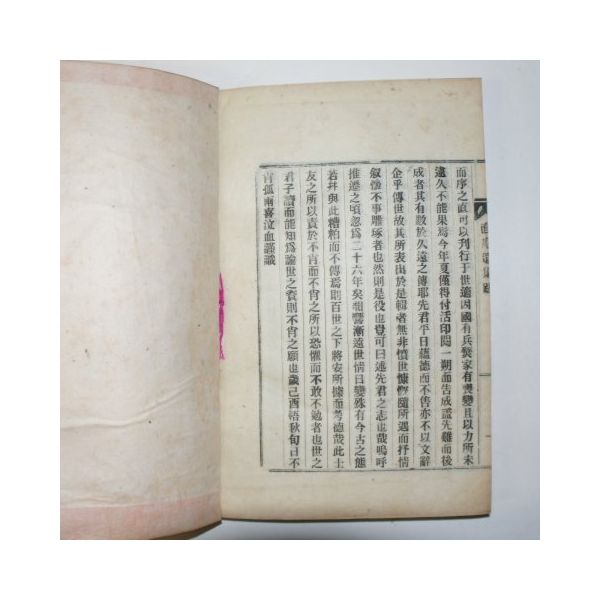 而序之直可以刊行于世適因國有兵燹家有喪變且以力所未
逮久不能果焉今年夏僅得付活印閱一朔而告成蓋先難而後
成者其有數於久遠之傳耶先君平日蘊德而不售亦不以文辭
企乎傳世故其所表出於是輯者無非憤世慷慨隨所遇而抒情
叙懷不事雕琢者也然則是役也豈可曰述先君之志也哉嗚呼
推遷之頃忽爲二十六年矣想響漸遠世情日變殊有今古之態
若幷與此糟粕而不傳焉則百世之下將安所據而考德哉此士
友之所以責於不肖而不肖之所以恐懼而不敢不勉者也世之
君子讀而能知爲論世之資則不肖之願也歲己酉梧秋旬日不
肖孤雨喜泣血謹識
遺集跋